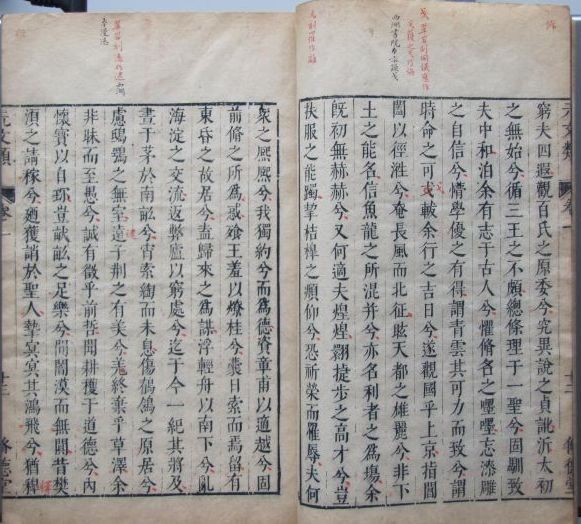 窮夫回遐觀百氏之原委兮究異說之貞訛泝太初
之無始兮循三王之不頗總條理于一聖兮固馴致
夫中和泊余有志于古人兮懼脩名之嘿嘿忘漆雕
之自信兮惰學優之有得謂青雲其可力而致兮謂
時命之可載余行之吉日兮遂觀國乎上京指閶
闔以徑進兮奄長風而北征眩天都之雄麗兮非下
土之能名信魚龍之所混并兮亦名利者之為傷余
旣初無赫赫兮又何適夫煌煌翾捷步之高才兮豈
扶服之能躅挈桔橰之頫仰兮恐祈榮而罹辱夫何
衆之熈熈兮我獨約兮而為德資章甫以適越兮固
前脩之所為惑飱王羞以燎桂兮曩日索而焉留有
東昏之故居兮盍歸來之為謀浮輕舟以南下兮亂
海淀之交流返弊廬以窮處兮迄于今一紀其將及
晝于茅於南畝兮宵索綯而未息傷鶺鴒之原居兮
慮鴟鴞之無室遠子荆之有美兮羗終棄乎草澤余
非昧而至愚兮誠有徵乎前哲聞耕穫于道德兮內
懷實以自珎豈畎畝之足樂兮閒闇漠而無聞昔樊
須之請稼兮廼獲誚於聖人摯冥冥其鴻飛兮猶稗
元文類
卷一
十三
脩德堂
元文類
卷一
十二
脩德堂